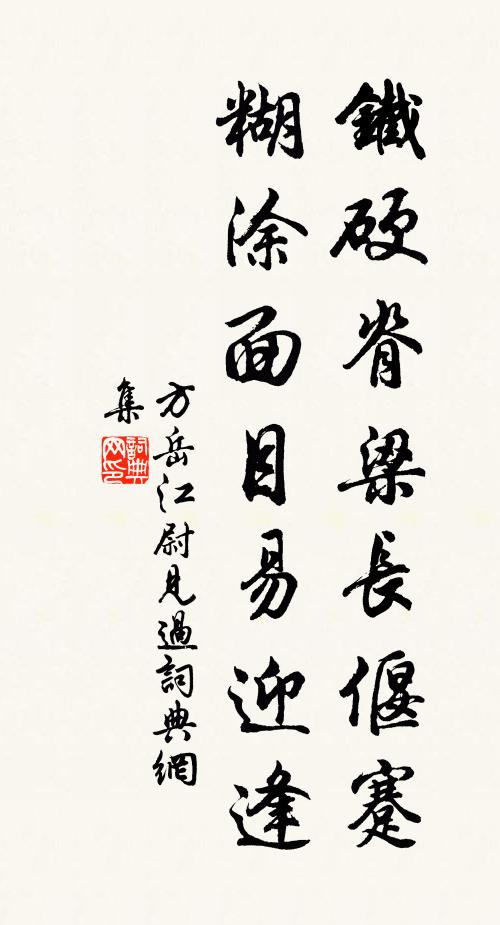 鐵硬脊梁長偃蹇
糊涂面目易迎逢
方岳江尉見過詞典網
集
詞典
网印